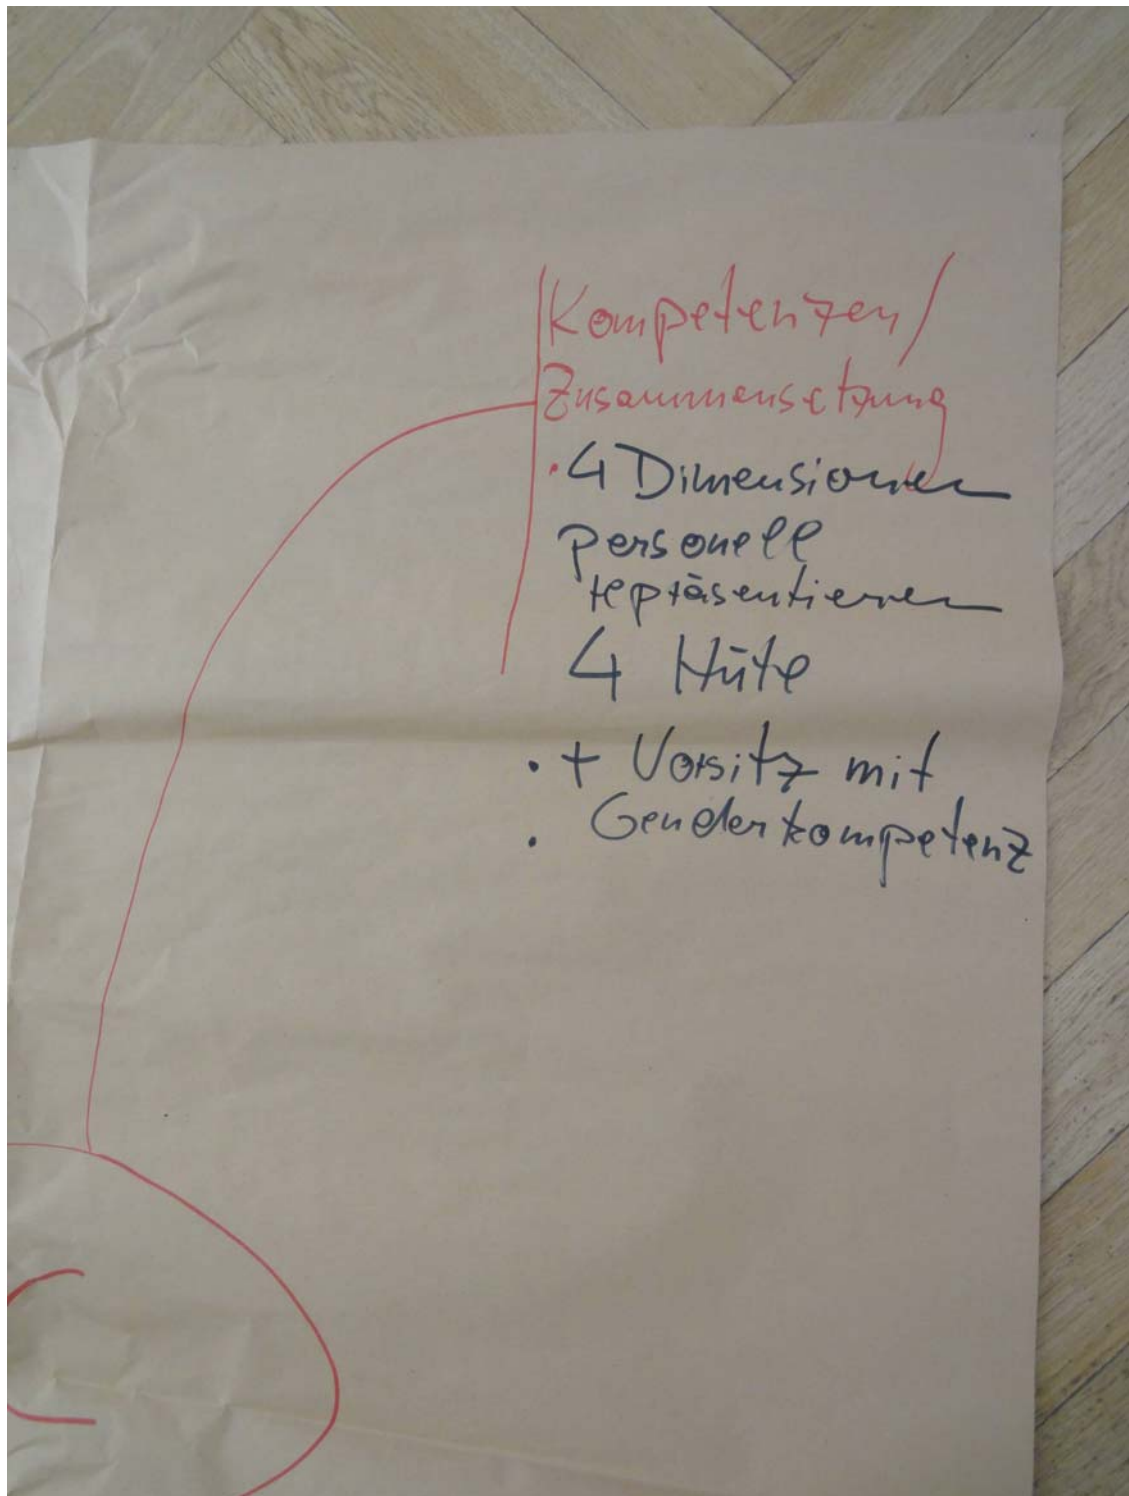 Kompetenzen/
Zusammensetzung
· 4 Dimensionen
personell
repräsentieren
4 Hüte
· + Vorsitz mit
· Genderkompetenz